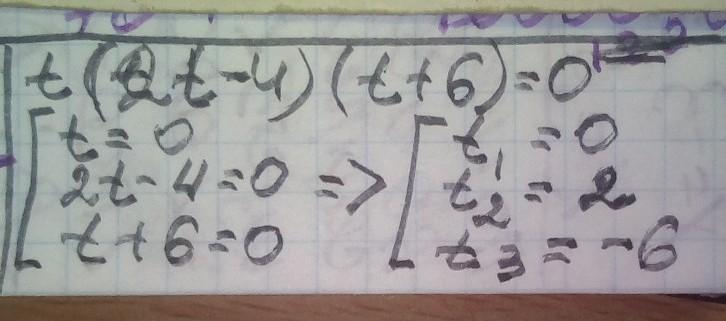 t(2t-4)(t+6)=0
[ t=0
2t-4=0 => [ t₁=0
t+6=0 t₂=2
t₃=-6